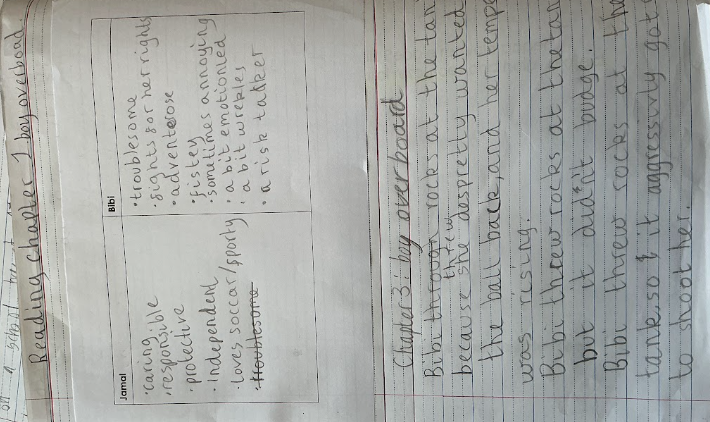 on a school
Reading chapter 1 boy overboad
Jamal
• caring
• responsible
• protective
• Independent
• Loves soccar/sporty
• troublesome
Bibi
• troublesome
• fights for her rights
• adventerose
• fistey
• sometimes annoying
• a bit emotionled
• a bit wrekles
• a risk talker
Chapter 3: boy overboard
Bibi through rocks at the tan
threw
because she despretly wanted
the ball back, and her tempe
was rising.
Bibi threw rocks at the tan
but it didn't budge.
Bibi threw rocks at the
tank, so it aggressivly got
to shoot her.